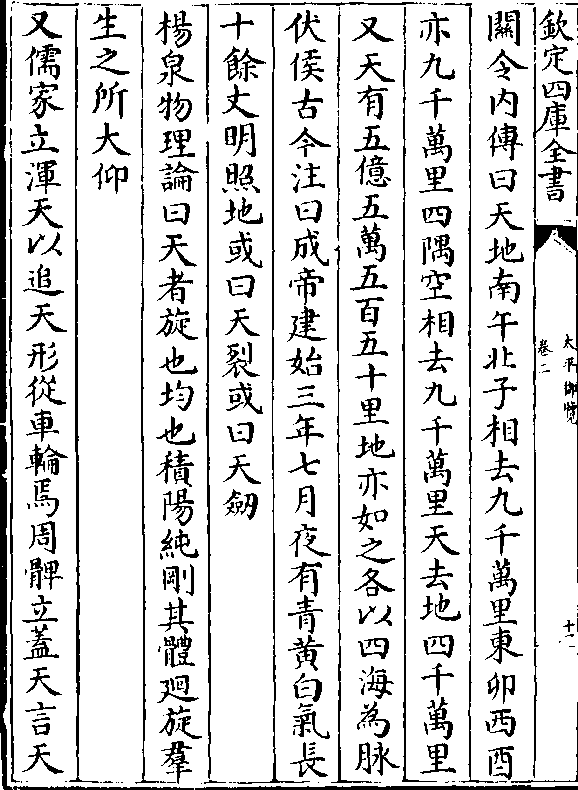 欽定四庫全書
太平御覽
卷二
十二
關令内傳曰天地南午北子相去九千萬里東卯西酉
亦九千萬里四隅空相去九千萬里天去地四千萬里
又天有五億五萬五百五十里地亦如之各以四海為脉
伏侯古今注曰成帝建始三年七月夜有青黄白氣長
十餘丈明照地或曰天裂或曰天劒
楊泉物理論曰天者旋也均也積陽純剛其體廻旋羣
生之所大仰
又儒家立渾天以追天形從車輪焉周髀立蓋天言天